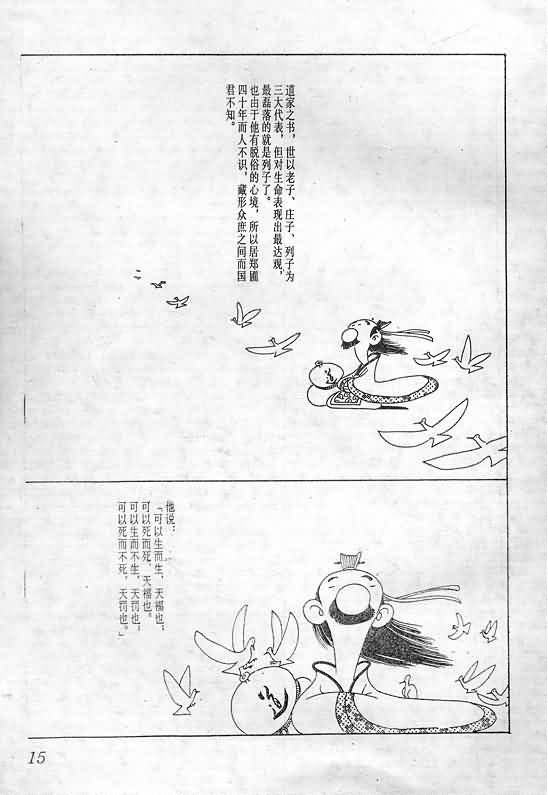 道家之书，世以老子、庄子、列子为
三大代表，但对生命表现出最达观，
最磊落的就是列子了。
也由于他有脱俗的心境，所以居郑圃
四十年而人不识，藏形众庶之间而国
君不知。
道
他说：
「可以生而生，天福也；
可以死而死，天福也。
可以生而不生，天罚也；
可以死而不死，天罚也。」
道
15